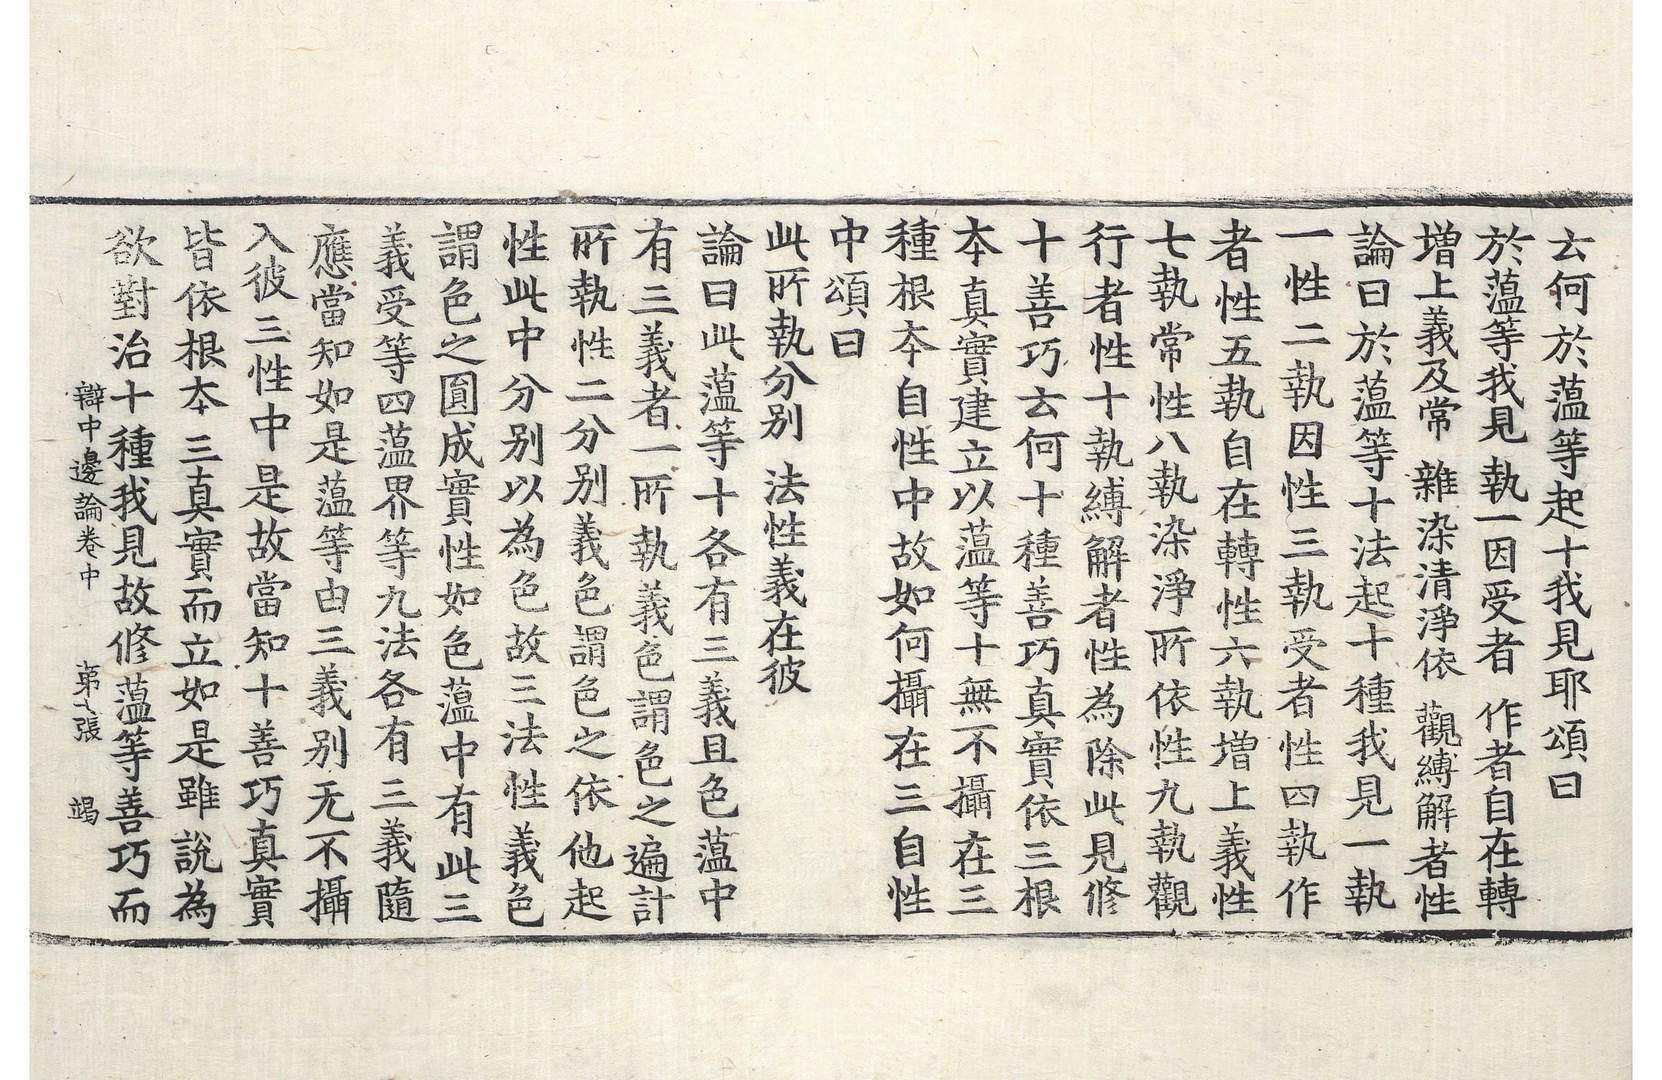 云何於蕰等起十我見耶頌曰
於蕰等我見 執一因受者 作者自在轉
增上義及常 雜染清淨依 觀縛解者性
論曰於蕰等十法起十種我見一執
一性二執因性三執受者性四執作
者性五執自在轉性六執增上義性
七執常性八執染淨所依性九執觀
行者性十執縛解者性為除此見修
十善巧云何十種善巧真實依三根
本真實建立以蕰等十無不攝在三
種根本自性中故如何攝在三自性
中頌曰
此所執分別 法性義在彼
論曰此蕰等十各有三義且色蕰中
有三義者一所執義色謂色之遍計
所執性二分別義色謂色之依他起
性此中分別以為色故三法性義色
謂色之圓成實性如色蕰中有此三
義受等四蕰界等九法各有三義隨
應當知如是蕰等由三義別无不攝
入彼三性中是故當知十善巧真實
皆依根本三真實而立如是雖說為
欲對治十種我見故修蕰等善巧而
辯中邊論卷中 苐七張 竭